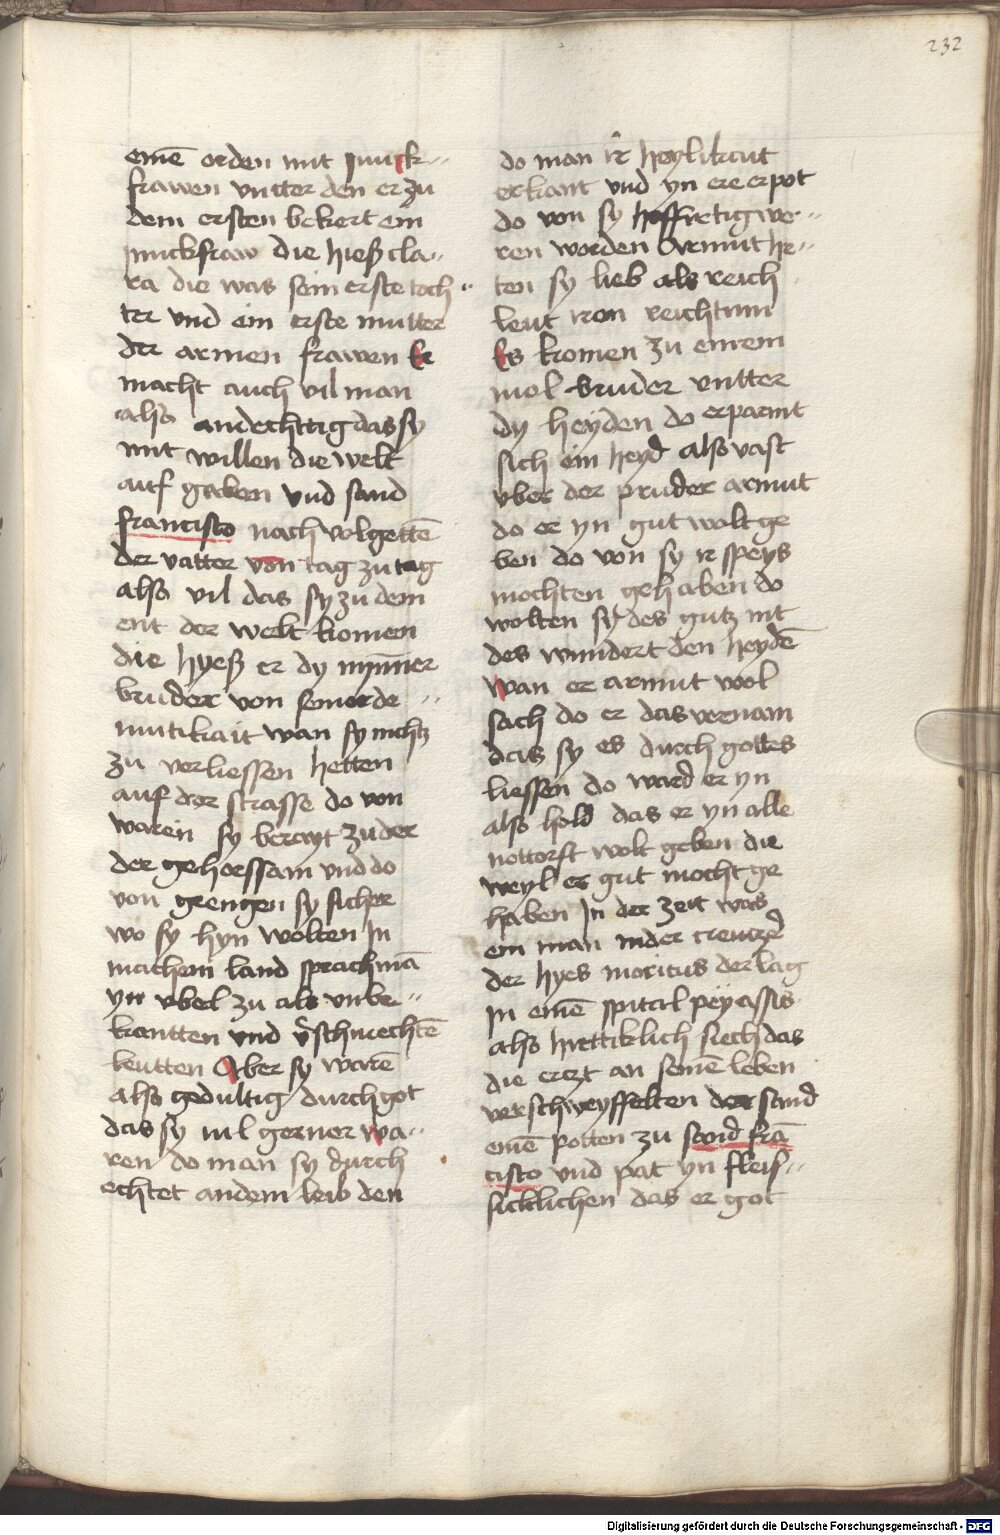 232
emē orden mit junck-
frawen vntter den er zu
dem ersten bekert ein
junckfraw die hieß cla-
ra die was sein erste toch-
ter vnd ein erste mutter
der armen frawen Er
macht auch vil man
also andechttig das sy
mit willen die welt
auf gaben vnd sand
francisco nach volgettē
der vatter von tag zu tag
also vil das sy zu dem
ent der welt komen
die hyeß er dy mynner
bruder von seiner de-
mutikait wan sy nichtz
zu verliessen hetten
auf der strasse do von
waren sy berayt zu der
der gehorssam vnd do
von giengen sy sicher
wo sy hyn wolten In
machem land sprach mā
yn vbel zu als vnbe-
kantten vnd v̄schmechtē
leutten Aber sy warē
also gedultig durch got
das sy vil gerner wa-
ren do man sy durch
echtet an dem leib den
do man ir heylikait
erkant vnd yn ere erpot
do von sy hoffretig we-
ren worden Armut he-
ten sy lieb als reich
leut iren reichtum
Es komen zu einem
mol bruder vntter
dy heyden do erparmt
sich ein heyd also vast
vber der pruder armut
do er yn gut wolt ge
ben do von sy ir speys
mochten gehaben do
wolten sy des gutz nit
des wundert den heydē
wan er armut wol
sach do er das vernam
das sy es durch gottes
liessen do ward er yn
also hold das er yn alle
nottorft wolt geben die
weyl er gut mocht ge
haben In der zeit was
ein man in der
der hyes moritus der lag
in einē spital pey assis
also hertiklich siech das
die erczt an seinē leben
verschweyffelten der sand
einē potten zu sand frā
cisco vnd pat yn fleis-
sicklichen das er got
Digitalisierung gefördert durch die Deutsche Forschungsgemeinschaft - DFG